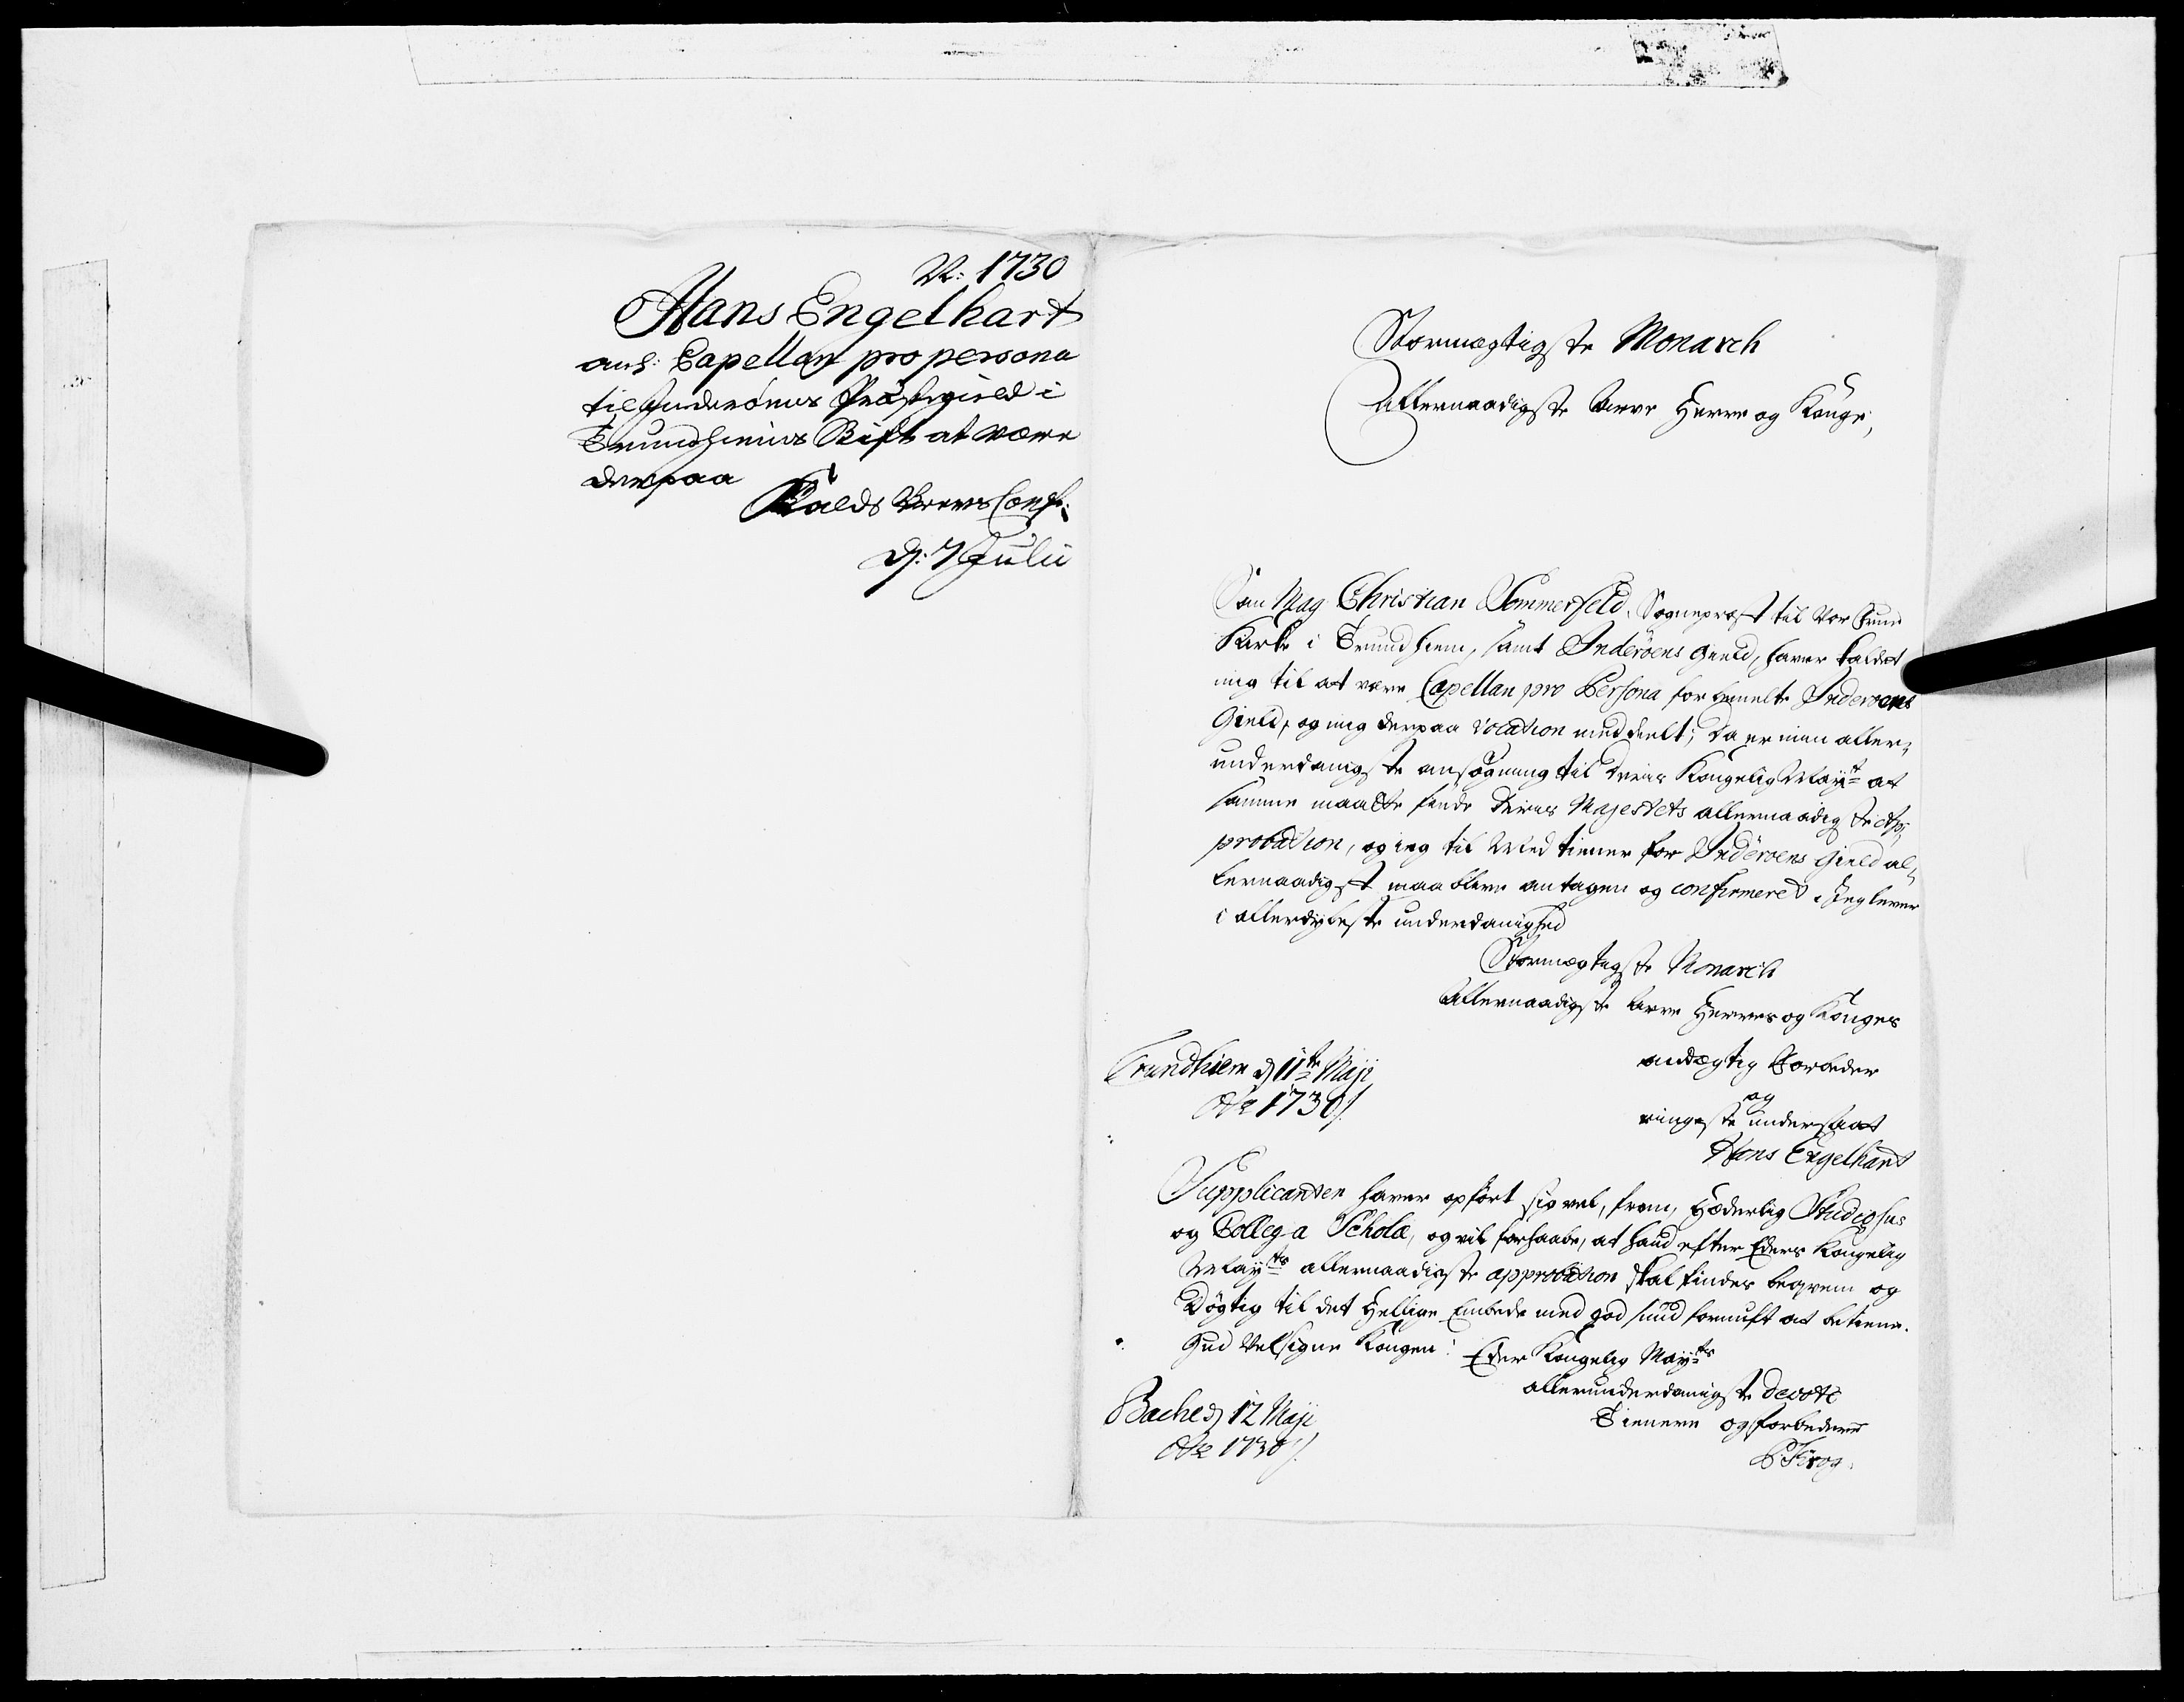 R: 1730
Hans Engelhart
ans: Capellan pro persona
til Inderöens Præstegield i
Trundhiems Stift at være
derpaa
Kalds Brevs Conf:
d: 7 Julii
Stormægtigste Monarch
Allernaadigste Arve Herre og Konge,
Som Mag Christian Sommerfeld, Sognepræst til Vor Frue
Kirke i Trundhiem, samt Inderöens Gield, haver kaldet
mig til at være Capellan pro Persona for bemelte Inderoens
Gield, og mig derpaa Vocation meddeelt; Da er min aller,,
underdanigste ansøgning til Deris Kongelig Mayt at
samme maatte finde Deris Majestets allernaadigste Ap,,
probation, og ieg til Medtiener for Inderoens Gield al,,
lernaadigst maa blive antagen og confirmeret, Jeg lever
i allerdybeste underdanighed
Stormægtigste Monarch
Allernaadigste Arve Herres og Konges
Trundhiem d 11te Maji
Ao 1730/.
andægtig Forbeder
og
ringeste undersaat
Hans Engelhart
Supplicanten haver opført sig vel, from, hæderlig Studiosus
og Collega Scholæ, og vil forhaabe, at hand efter Eders Kongelig
Mayts allernaadigste approbation skal findes beqvem og
Døgtig til det Hellige Embede med god sund fornuft at betiene.
Gud Velsigne Kongen!
Eder Kongelig Mayts
allerunderdanigste devote
Tienere og forbedere
Bache d 12 Maji
Ao 1730/.